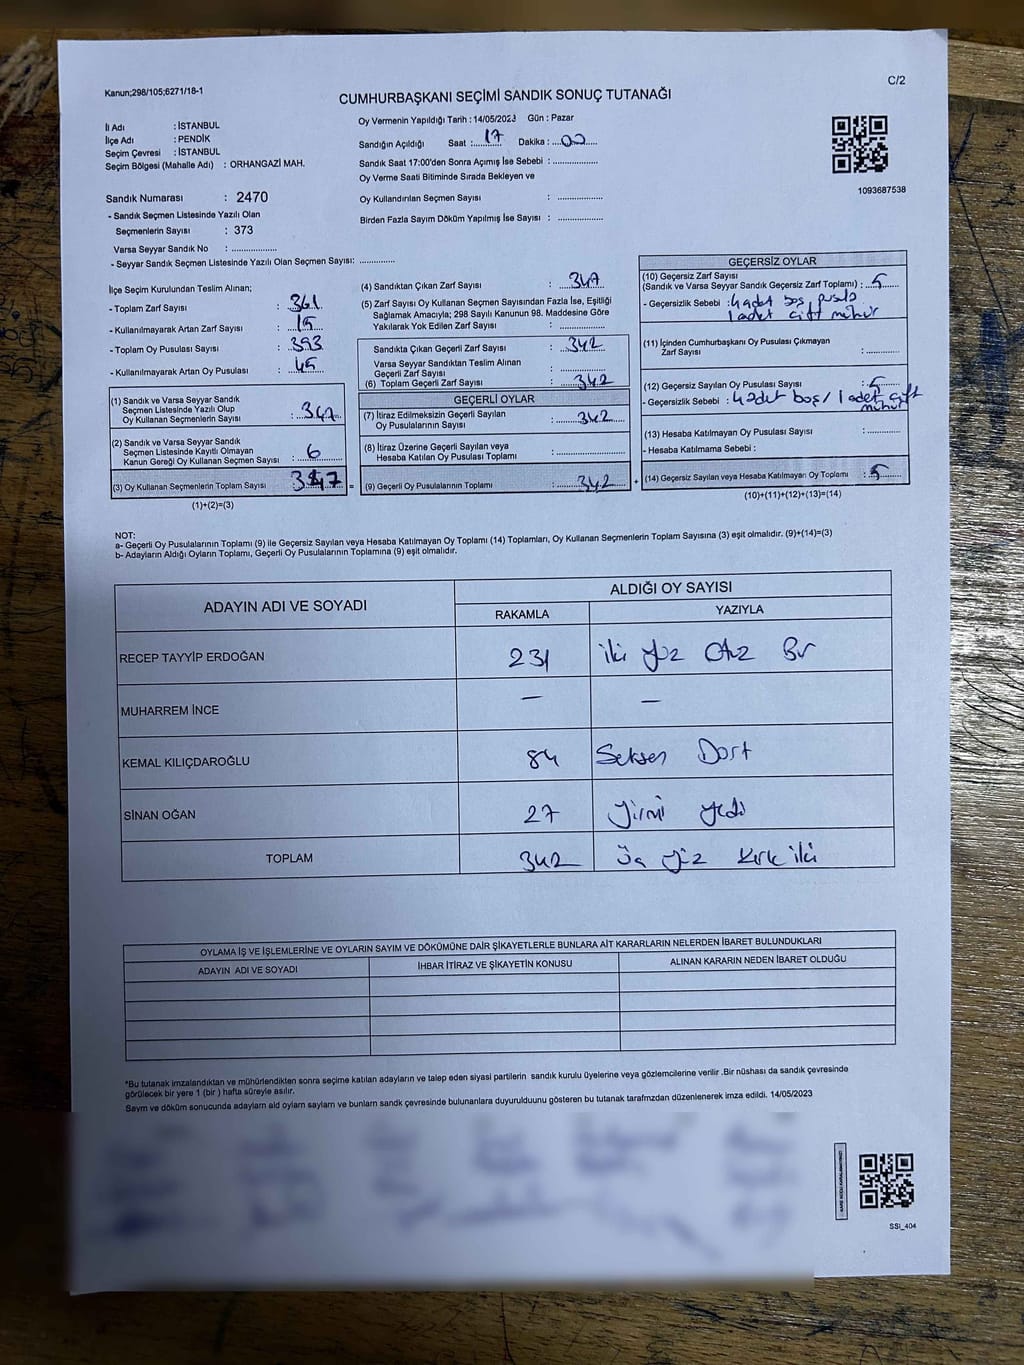 Kanun;298/105;6271/18-1
C/2
CUMHURBAŞKANI SEÇİMİ SANDIK SONUÇ TUTANAĞI
İl Adı : İSTANBUL
İlçe Adı : PENDİK
Seçim Çevresi : İSTANBUL
Seçim Bölgesi (Mahalle Adı) : ORHANGAZİ MAH.
Oy Vermenin Yapıldığı Tarih : 14/05/2023 Gün : Pazar
Sandığın Açıldığı Saat : 17 Dakika : 00
Sandık Saat 17:00'den Sonra Açılmış İse Sebebi :
Oy Verme Saati Bitiminde Sırada Bekleyen ve
Oy Kullandırılan Seçmen Sayısı :
Birden Fazla Sayım Döküm Yapılmış İse Sayısı :
1093687538
Sandık Numarası : 2470
- Sandık Seçmen Listesinde Yazılı Olan
Seçmenlerin Sayısı : 373
Varsa Seyyar Sandık No :
- Seyyar Sandık Seçmen Listesinde Yazılı Olan Seçmen Sayısı:
İlçe Seçim Kurulundan Teslim Alınan;
- Toplam Zarf Sayısı : 361
- Kullanılmayarak Artan Zarf Sayısı : 15
- Toplam Oy Pusulası Sayısı : 393
- Kullanılmayarak Artan Oy Pusulası : 45
(1) Sandık ve Varsa Seyyar Sandık
Seçmen Listesinde Yazılı Olup
Oy Kullanan Seçmenlerin Sayısı : 347
(2) Sandık ve Varsa Seyyar Sandık
Seçmen Listesinde Kayıtlı Olmayan
Kanun Gereği Oy Kullanan Seçmen Sayısı : 6
(3) Oy Kullanan Seçmenlerin Toplam Sayısı 347 =
(1)+(2)=(3)
(4) Sandıktan Çıkan Zarf Sayısı : 347
(5) Zarf Sayısı Oy Kullanan Seçmen Sayısından Fazla İse, Eşitliği
Sağlamak Amacıyla; 298 Sayılı Kanunun 98. Maddesine Göre
Yakılarak Yok Edilen Zarf Sayısı :
Sandıkta Çıkan Geçerli Zarf Sayısı : 342
Varsa Seyyar Sandıktan Teslim Alınan
Geçerli Zarf Sayısı :
(6) Toplam Geçerli Zarf Sayısı : 342
GEÇERLİ OYLAR
(7) İtiraz Edilmeksizin Geçerli Sayılan
Oy Pusulalarının Sayısı : 342
(8) İtiraz Üzerine Geçerli Sayılan veya
Hesaba Katılan Oy Pusulası Toplamı :
(9) Geçerli Oy Pusulalarının Toplamı : 342 +
GEÇERSİZ OYLAR
(10) Geçersiz Zarf Sayısı
(Sandık ve Varsa Seyyar Sandık Geçersiz Zarf Toplamı) : 5
- Geçersizlik Sebebi : 4 adet boş pusula
1 adet çift mühür
(11) İçinden Cumhurbaşkanı Oy Pusulası Çıkmayan
Zarf Sayısı :
(12) Geçersiz Sayılan Oy Pusulası Sayısı : 5
- Geçersizlik Sebebi : 4 adet boş / 1 adet çift
mühür
(13) Hesaba Katılmayan Oy Pusulası Sayısı :
- Hesaba Katılmama Sebebi :
(14) Geçersiz Sayılan veya Hesaba Katılmayan Oy Toplamı : 5
(10)+(11)+(12)+(13)=(14)
NOT:
a- Geçerli Oy Pusulalarının Toplamı (9) ile Geçersiz Sayılan veya Hesaba Katılmayan Oy Toplamı (14) Toplamları, Oy Kullanan Seçmenlerin Toplam Sayısına (3) eşit olmalıdır. (9)+(14)=(3)
b- Adayların Aldığı Oyların Toplamı, Geçerli Oy Pusulalarının Toplamına (9) eşit olmalıdır.
ADAYIN ADI VE SOYADI
ALDIĞI OY SAYISI
RAKAMLA YAZIYLA
RECEP TAYYİP ERDOĞAN 231 iki yüz Otuz Bir
MUHARREM İNCE — —
KEMAL KILIÇDAROĞLU 84 Seksen Dört
SİNAN OĞAN 27 yirmi yedi
TOPLAM 342 üç yüz kırk iki
OYLAMA İŞ VE İŞLEMLERİNE VE OYLARIN SAYIM VE DÖKÜMÜNE DAİR ŞİKAYETLERLE BUNLARA AİT KARARLARIN NELERDEN İBARET BULUNDUKLARI
ADAYIN ADI VE SOYADI İHBAR İTİRAZ VE ŞİKAYETİN KONUSU ALINAN KARARIN NEDEN İBARET OLDUĞU
*Bu tutanak imzalandıktan ve mühürlendikten sonra seçime katılan adayların ve talep eden siyasi partilerin sandık kurulu üyelerine veya gözlemcilerine verilir .Bir nüshası da sandık çevresinde
görülecek bir yere 1 (bir ) hafta süreyle asılır.
Sayım ve döküm sonucunda adayların ald oyların sayıları ve bunların sandk çevresinde bulunanlara duyurulduunu gösteren bu tutanak tarafmzdan düzenlenerek imza edildi. 14/05/2023
SSI_404